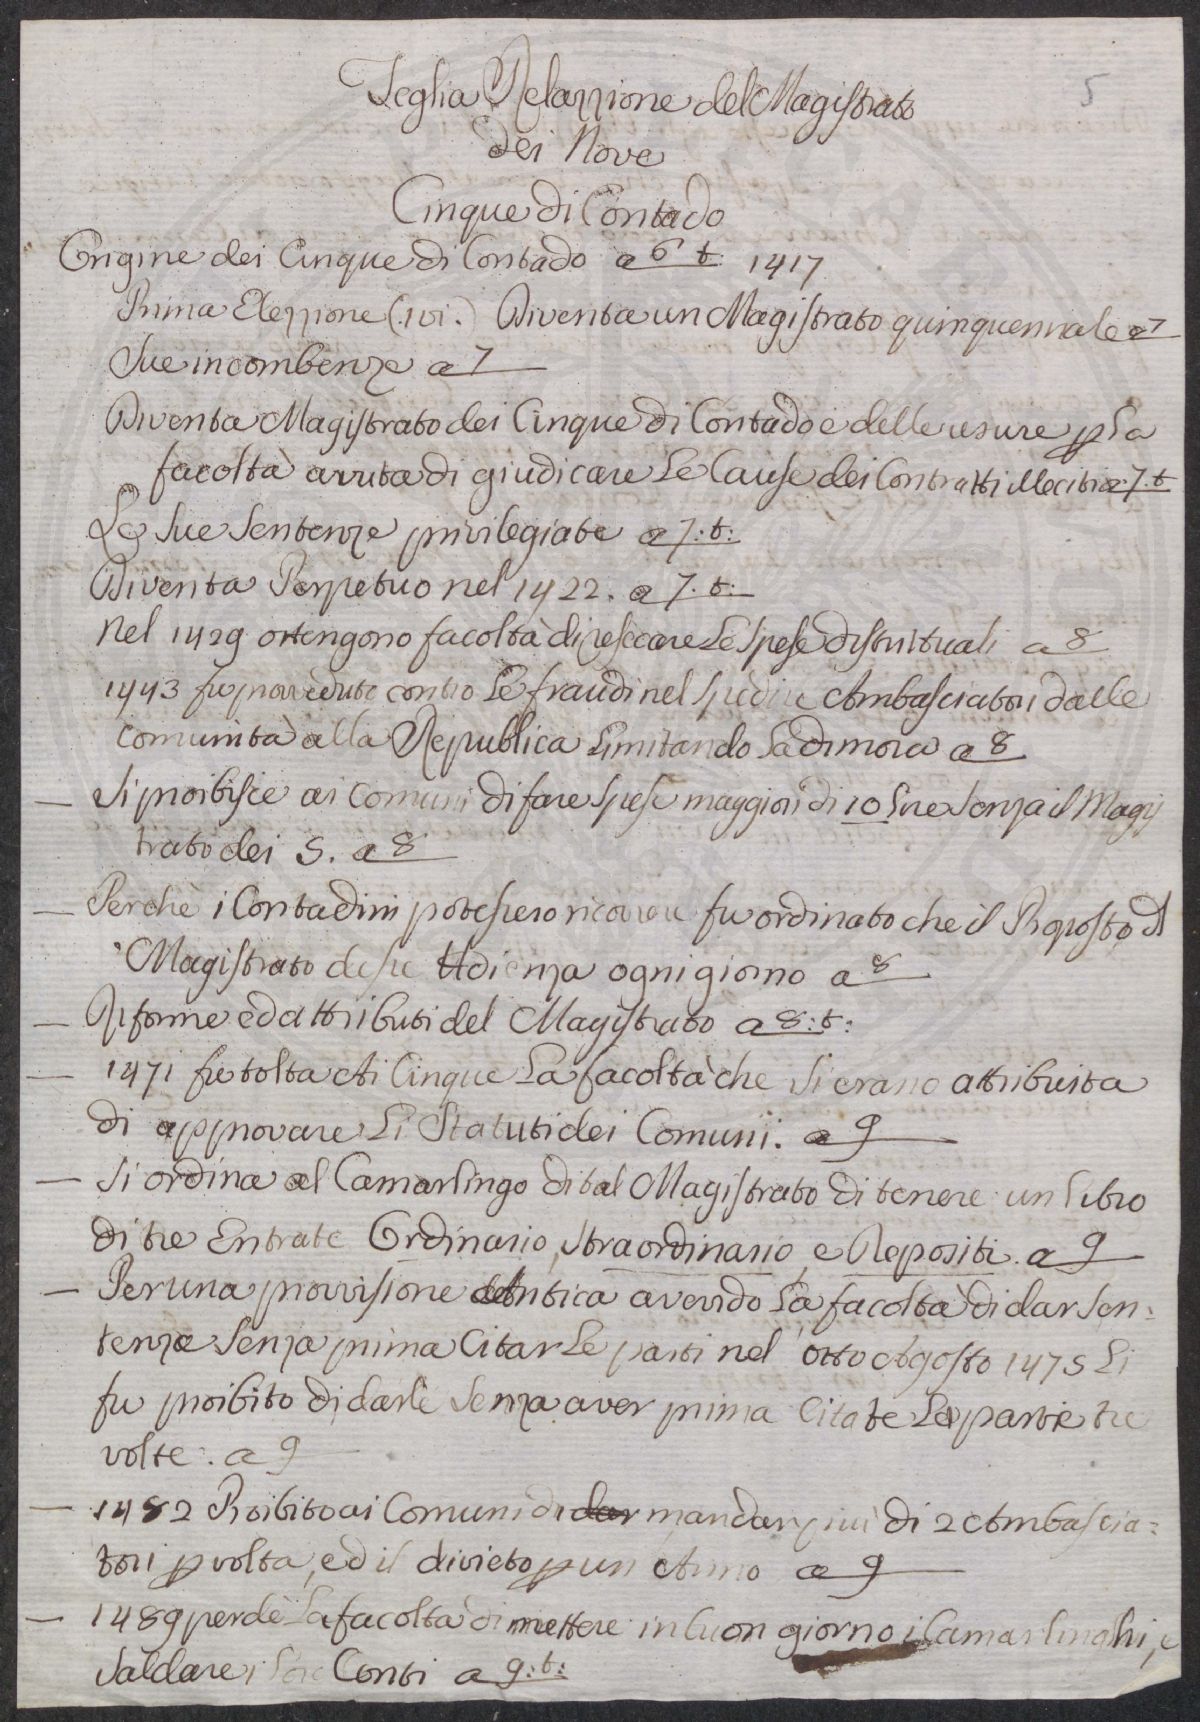 5
Seglia Relazzione del Magistrato
dei Nove
Cinque di Contado
Origine dei Cinque di Contado a 6 t. 1417
Prima Elezzione (ivi.) Diventa un Magistrato quinquennale a 7
Sue incombenze a 7
Diventa Magistrato dei Cinque di Contado e delle usure p la
facoltà avuta di giudicare Le Cause dei Contratti illeciti a 7. t
Le Sue Sentenze privilegiate a 7: t:
Diventa Perpetuo nel 1422. a 7. t:
Nel 1429 ottengono facoltà di resecare Le Spese distrituali a 8
1443 fu provveduto contro Le fraudi nel spedire Ambasciatori dalle
comunità alla Republica Limitando La dimora a 8
— Si proibisce ai Comuni di fare Spese maggiori di 10 Lire Senza il Magis
trato dei 5. a 8
— Perchè i Contadini potessero ricorrere fu ordinato che il Proposto d
Magistrato desse Udienza ogni giorno a 8
— Riforme ed attributi del Magistrato a 8: t:
— 1471 fu tolta Ai Cinque La facoltà che Si erano attribuita
di approvare Li Statuti dei Comuni. a 9
— Si ordina al Camarlingo di tal Magistrato di tenere un Libro
di tre Entrate Ordinario, Straordinario, e Repositi. a 9
— Per una provvisione Antica avendo La facoltà di dar Sen:
tenze Senza prima Citar Le parti nel otto Agosto 1475 Li
fu proibito di darle Senza aver prima Citate Le parti tre
volte. a 9
— 1482 Proibito ai Comuni di dar mandar più di 2 Ambascia:
tori p volta, ed il divieto p un Anno a 9
— 1489 perdè La facoltà di mettere in buon giorno i Camarlinghi, e
Saldare i Loro Conti a 9: t: